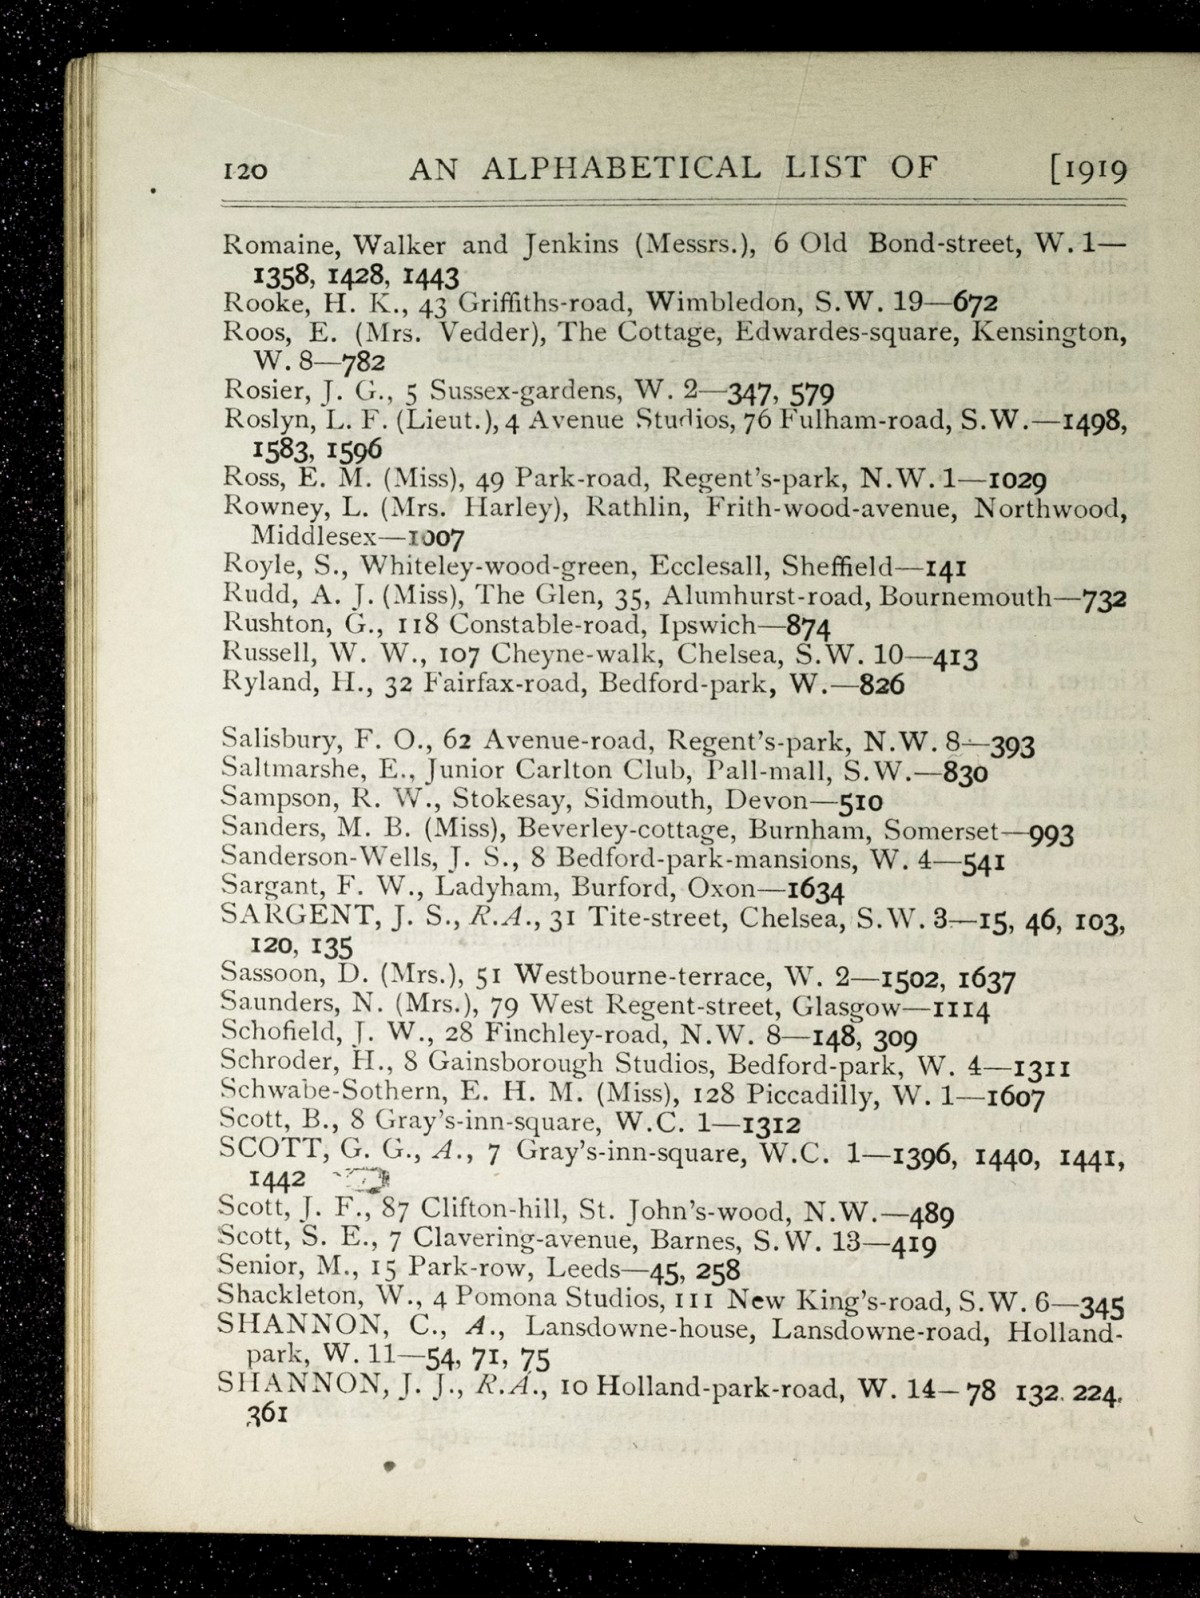 120 AN ALPHABETICAL LIST OF [1919
Romaine, Walker and Jenkins (Messrs.), 6 Old Bond-street, W. 1—
1358, 1428, 1443
Rooke, H. K., 43 Griffiths-road, Wimbledon, S.W. 19—672
Roos, E. (Mrs. Vedder), The Cottage, Edwardes-square, Kensington,
W. 8—782
Rosier, J. G., 5 Sussex-gardens, W. 2—347, 579
Roslyn, L. F. (Lieut.), 4 Avenue Studios, 76 Fulham-road, S.W.—1498,
1583, 1596
Ross, E. M. (Miss), 49 Park-road, Regent's-park, N.W. 1—1029
Rowney, L. (Mrs. Harley), Rathlin, Frith-wood-avenue, Northwood,
Middlesex—1007
Royle, S., Whiteley-wood-green, Ecclesall, Sheffield—141
Rudd, A. J. (Miss), The Glen, 35, Alumhurst-road, Bournemouth—732
Rushton, G., 118 Constable-road, Ipswich—874
Russell, W. W., 107 Cheyne-walk, Chelsea, S.W. 10—413
Ryland, H., 32 Fairfax-road, Bedford-park, W.—826
Salisbury, F. O., 62 Avenue-road, Regent's-park, N.W. 8—393
Saltmarshe, E., Junior Carlton Club, Pall-mall, S.W.—830
Sampson, R. W., Stokesay, Sidmouth, Devon—510
Sanders, M. B. (Miss), Beverley-cottage, Burnham, Somerset—993
Sanderson-Wells, J. S., 8 Bedford-park-mansions, W. 4—541
Sargant, F. W., Ladyham, Burford, Oxon—1634
SARGENT, J. S., R.A., 31 Tite-street, Chelsea, S.W. 3—15, 46, 103,
120, 135
Sassoon, D. (Mrs.), 51 Westbourne-terrace, W. 2—1502, 1637
Saunders, N. (Mrs.), 79 West Regent-street, Glasgow—1114
Schofield, J. W., 28 Finchley-road, N.W. 8—148, 309
Schroder, H., 8 Gainsborough Studios, Bedford-park, W. 4—1311
Schwabe-Sothern, E. H. M. (Miss), 128 Piccadilly, W. 1—1607
Scott, B., 8 Gray's-inn-square, W.C. 1—1312
SCOTT, G. G., A., 7 Gray's-inn-square, W.C. 1—1396, 1440, 1441,
1442
Scott, J. F., 87 Clifton-hill, St. John's-wood, N.W.—489
Scott, S. E., 7 Clavering-avenue, Barnes, S.W. 13—419
Senior, M., 15 Park-row, Leeds—45, 258
Shackleton, W., 4 Pomona Studios, 111 New King's-road, S.W. 6—345
SHANNON, C., A., Lansdowne-house, Lansdowne-road, Holland-
park, W. 11—54, 71, 75
SHANNON, J. J., R.A., 10 Holland-park-road, W. 14—78 132. 224,
361